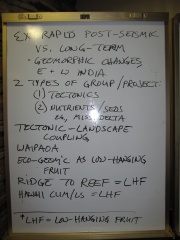 EX: RAPID POST-SEISMIC
VS. LONG-TERM
• GEOMORPHIC CHANGES
E + W INDIA
2 TYPES OF GROUP/PROJECT:
(1) TECTONICS
(2) NUTRIENTS/SEDS
eg, MISS. DELTA
TECTONIC-LANDSCAPE
COUPLING
WAIPAOA
ECO-GEOMIC AS LOW-HANGING
FRUIT
RIDGE TO REEF = LHF
HAWAII CLIM/US = LHF
*LHF = LOW-HANGING FRUIT